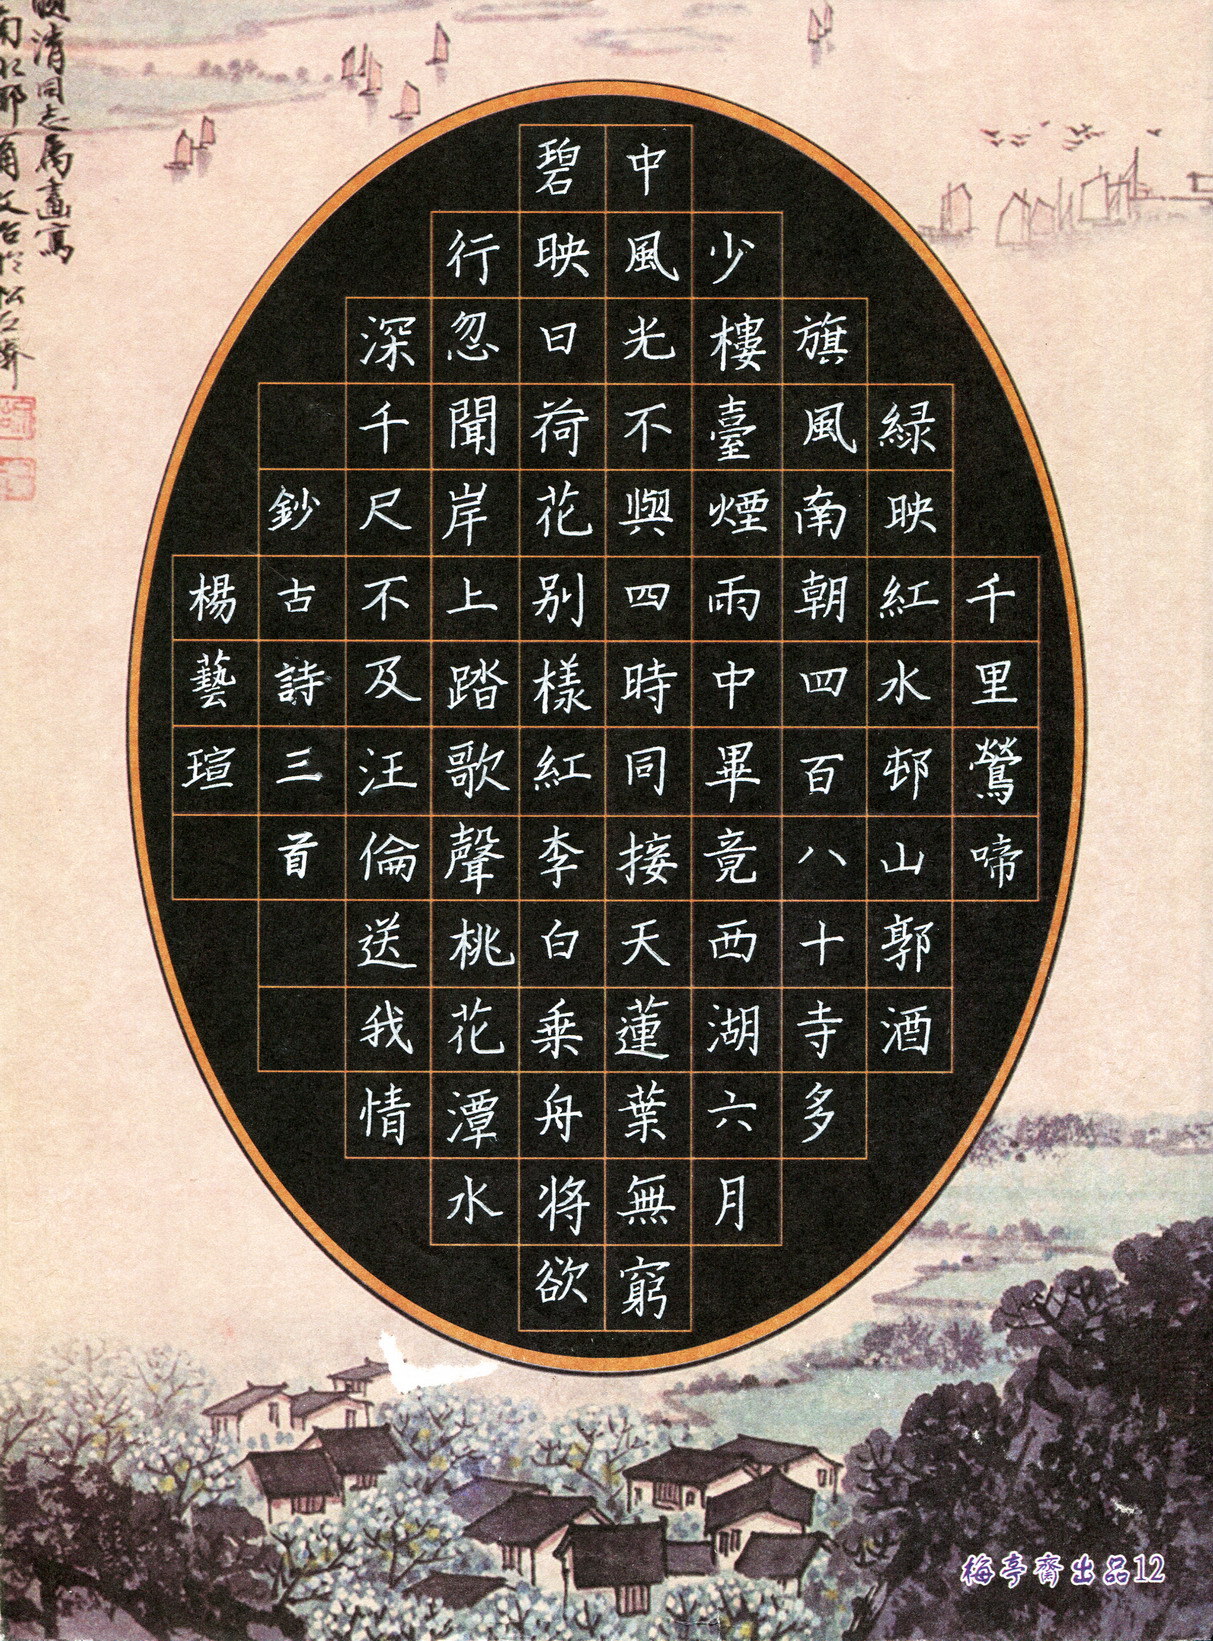 千里鶯啼
緑映紅水邨山郭酒
旗風南朝四百八十寺多
少樓臺煙雨中畢竟西湖六月
中風光不與四時同接天蓮葉無窮
碧映日荷花别樣紅李白乗舟将欲
行忽聞岸上踏歌聲桃花潭水
深千尺不及汪倫送我情
鈔古詩三首
楊藝瑄
清同志属畫寫
梅亭齋出品12